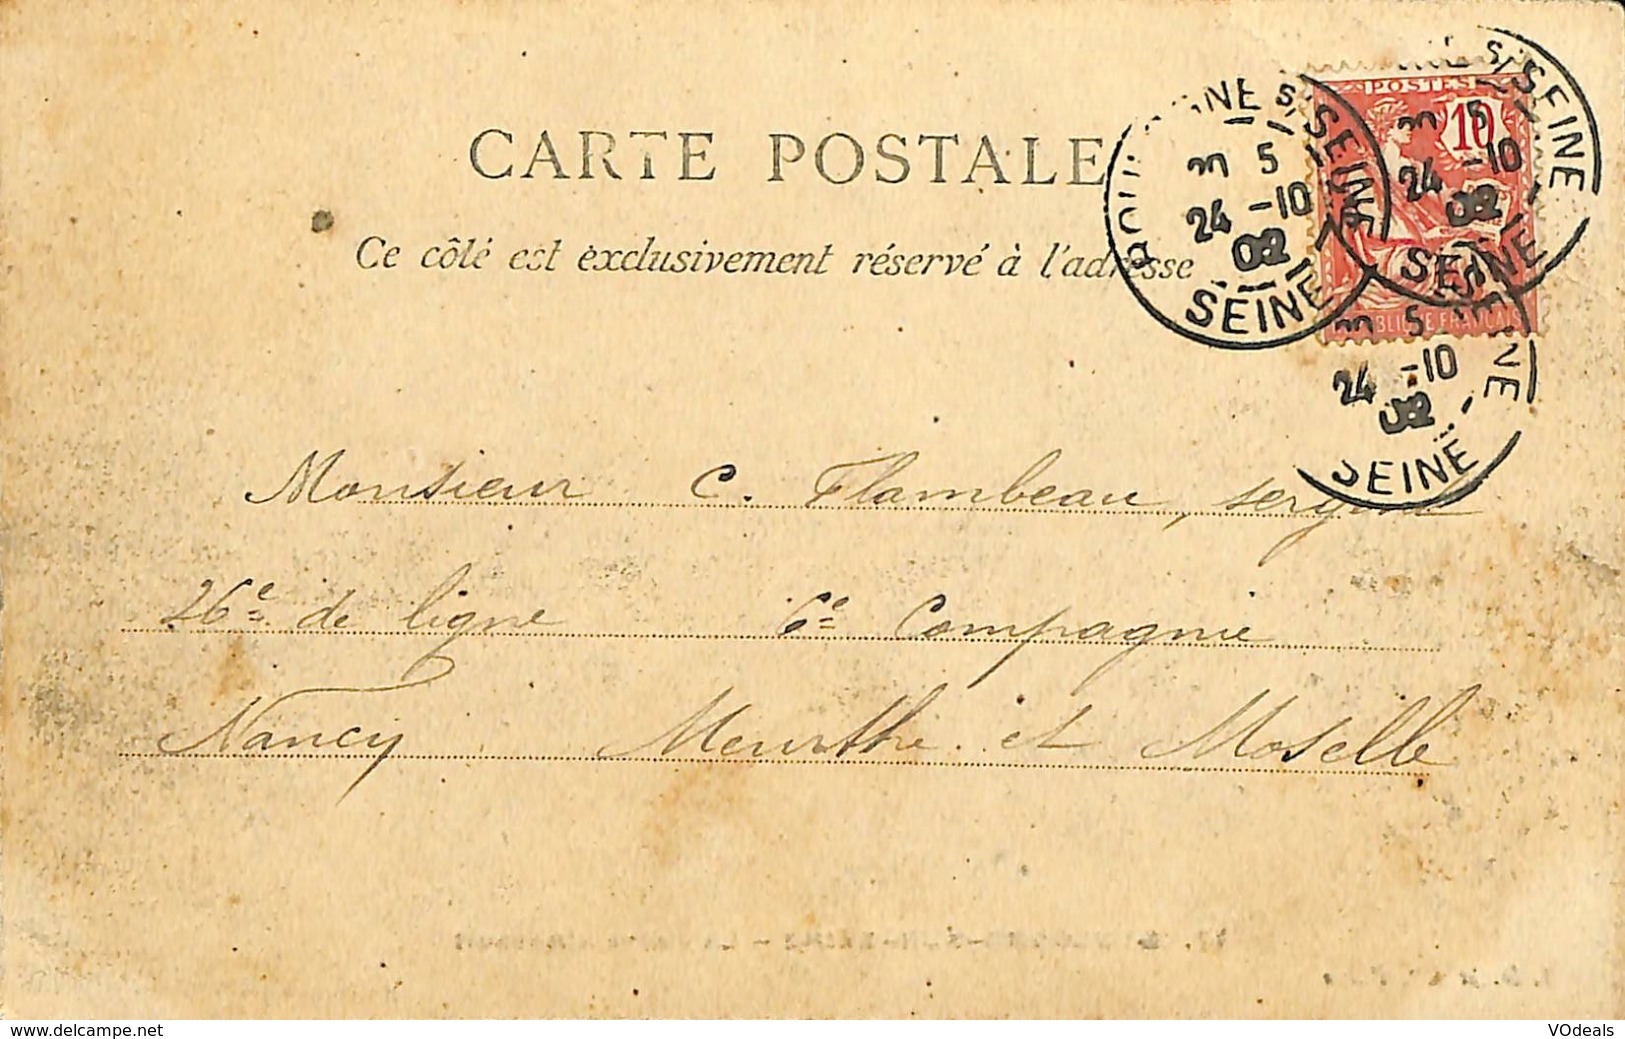 CARTE POSTALE
Ce côté est exclusivement réservé à l'adresse
POSTES
10
RÉPUBLIQUE FRANÇAISE
5
24 -10
02
SEINE
5
24 -10
02
SEINE
5
24 -10
02
SEINE
Monsieur C. Flambeau, sergent
26e de ligne 6e Compagnie
Nancy Meurthe et Moselle
www.delcampe.net
VOdeals